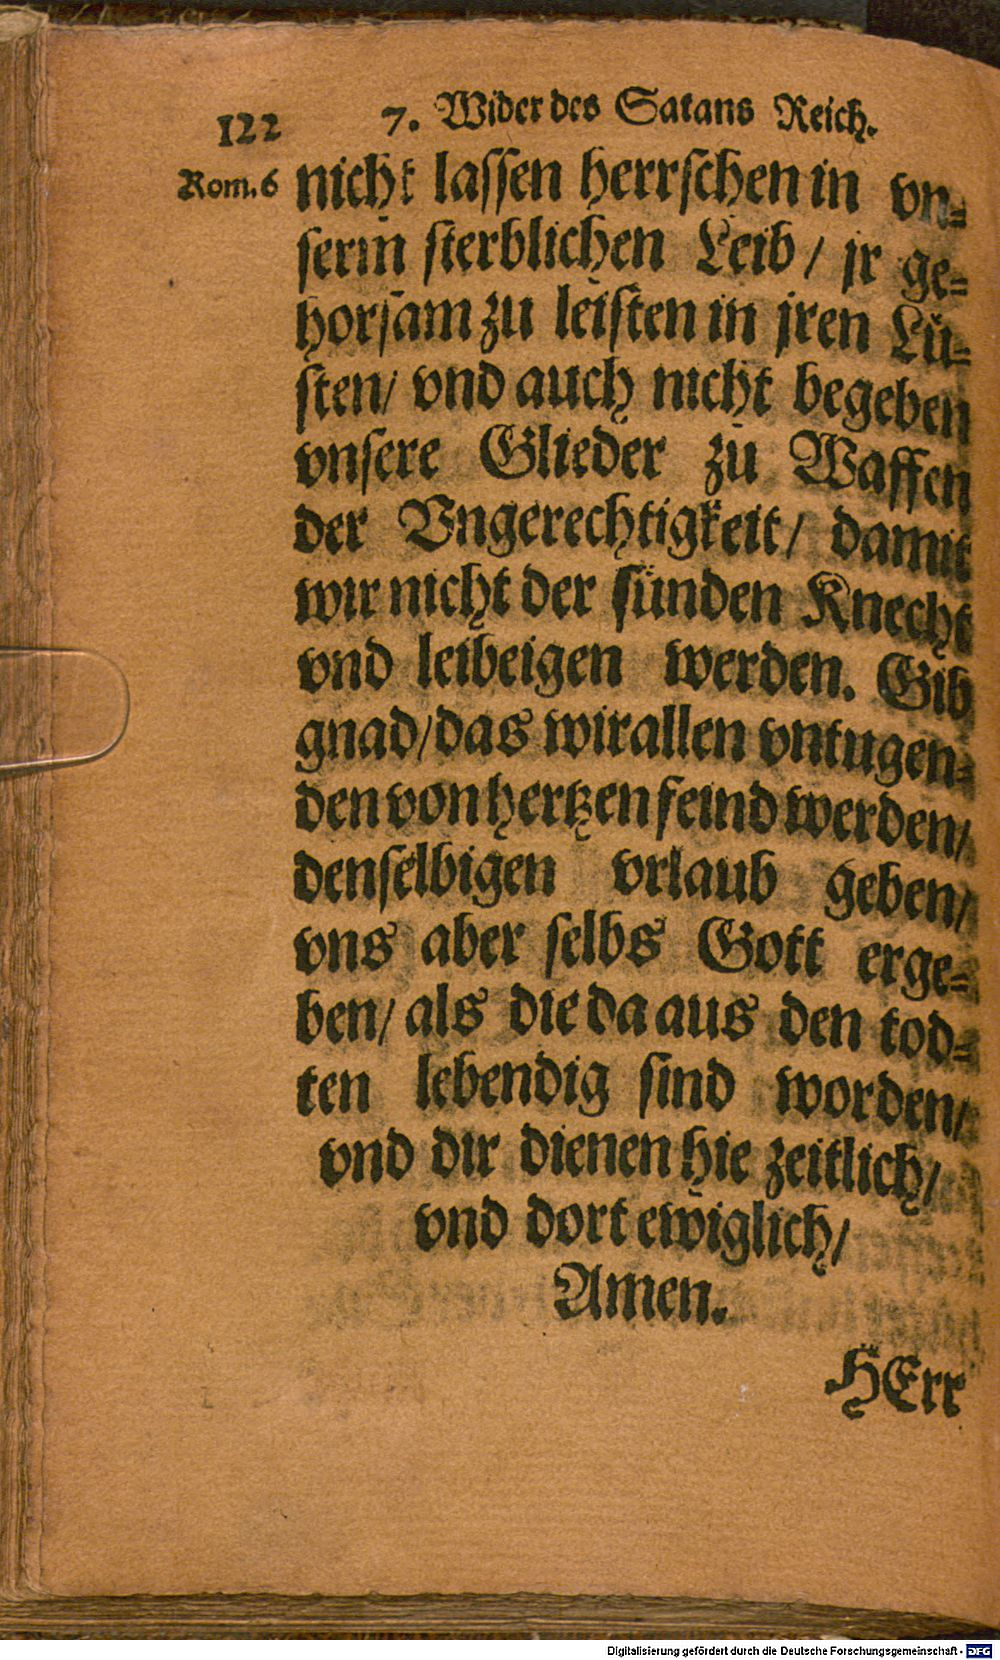 122 7. Wider des Satans Reich.
Rom. 6 nicht lassen herrschen in vn=
serm sterblichen Leib / jr ge=
horsam zu leisten in jren Lü=
sten / vnd auch nicht begeben
vnsere Glieder zu Waffen
der Vngerechtigkeit / damit
wir nicht der sünden Knecht
vnd leibeigen werden. Gib
gnad / das wir allen vntugen=
den von hertzen feind werden /
denselbigen vrlaub geben /
vns aber selbs Gott erge=
ben / als die da aus den tod=
ten lebendig sind worden /
vnd dir dienen hie zeitlich /
vnd dort ewiglich /
Amen.
HErr
Digitalisierung gefördert durch die Deutsche Forschungsgemeinschaft - DFG